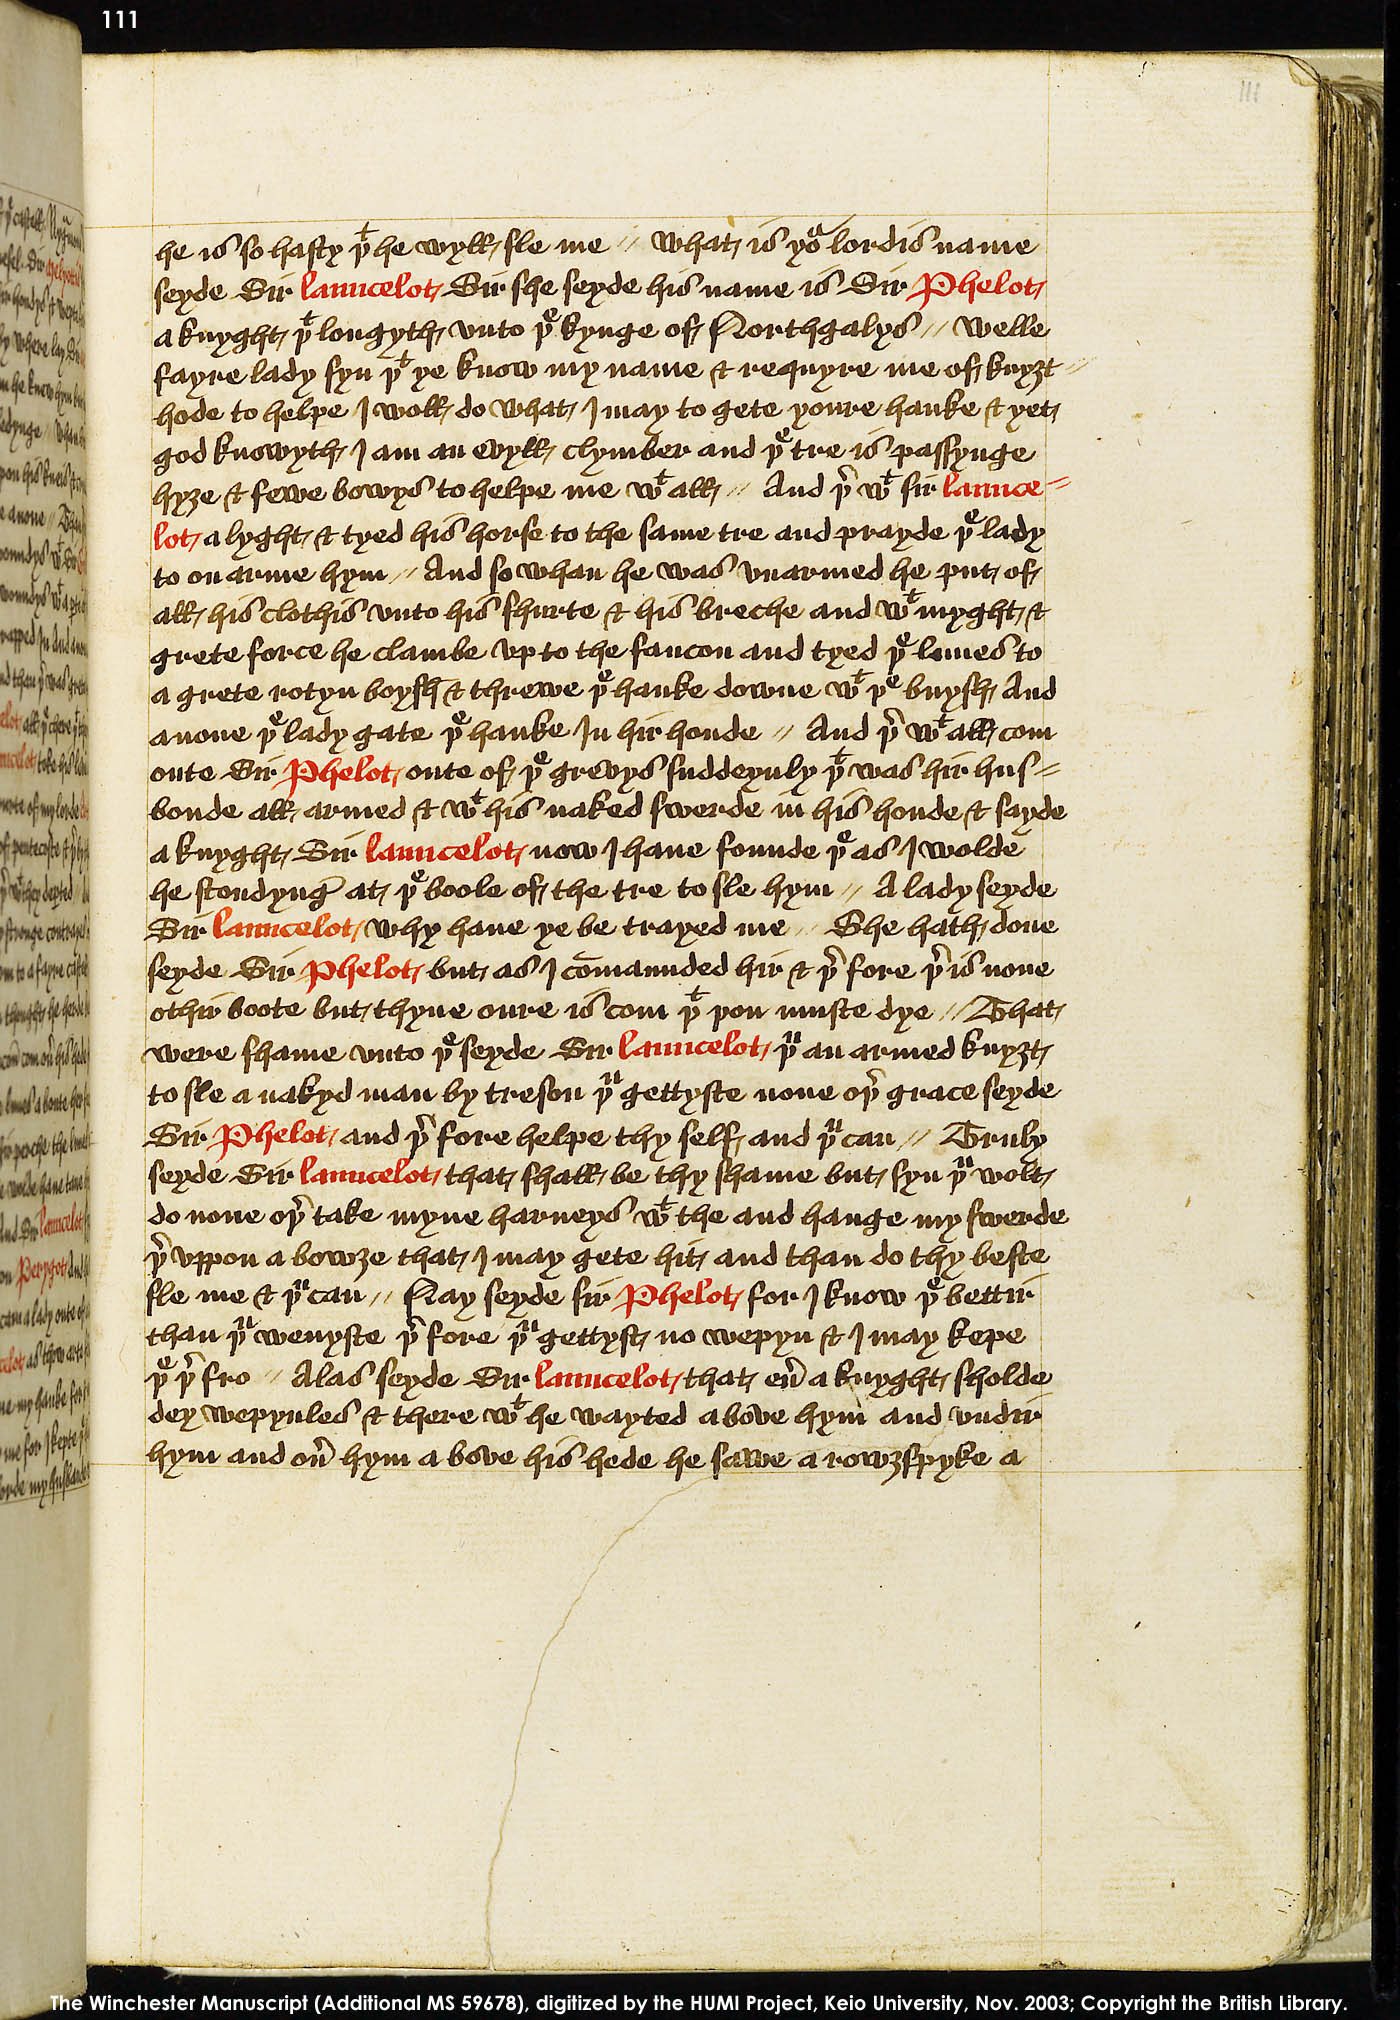 111
111
he is so hasty þᵗ he wyll sle me // What is yoʳ lordis name
seyde Sir Launcelot Sir she seyde his name is Sir Phelot
a knyght þᵗ longyth vnto þᵉ kynge of Northgalys // Welle
fayre lady syn þᵗ ye know my name & requyre me of knyȝt=
hode to helpe I woll do what I may to gete youre hauke & yet
god knowyth I am an evyll clymber and þᵉ tre is passynge
hyȝe & fewe bowys to helpe me wᵗ all // And þ̑ wᵗ sir Launce=
lot a lyght & tyed his horse to the same tre and prayde þᵉ lady
to on arme hym // And so whan he was vnarmed he put of
all his clothis vnto his shurte & his breche and wᵗ myght &
grete force he clambe vp to the faucon and tyed þᵉ lunes to
a grete rotyn boysh & threwe þᵉ hauke downe wᵗ þᵉ buysh And
anone þᵉ lady gate þᵉ hauke In hir honde // And þ̑ wᵗ all com
oute Sir Phelot oute of þᵉ grevys suddeynly þᵗ was hir hus=
bonde all armed & wᵗ his naked swerde in his honde & sayde
a knyght Sir Launcelot now I haue founde þᵉ as I wolde
he stondyng at þᵉ boole of the tre to sle hym // A lady seyde
Sir Launcelot why haue ye be trayed me // She hath done
seyde Sir Phelot but as I cōmaunded hir & þ̑ fore þ̑ is none
othir boote but thyne oure is com þᵗ þou muste dye // That
were shame vnto þᵉ seyde Sir Launcelot þᵘ an armed knyȝt
to sle a nakyd man by treson þᵘ gettyste none oþ̑ grace seyde
Sir Phelot and þ̑ fore helpe thy self and þᵘ can // Truly
seyde Sir Launcelot that shall be thy shame but syn þᵘ wolt
do none oþ̑ take myne harneys wᵗ the and hange my swerde
þ̑ vppon a bowȝe that I may gete hit and than do thy beste
sle me & þᵘ can // Nay seyde sir Phelot for I know þᵉ bettir
than þᵘ wenyste þ̑ fore þᵘ gettyst no wepyn & I may kepe
þᵉ þ̑ fro // Alas seyde Sir Launcelot that eȗ a knyght sholde
dey wepynles & there wᵗ he wayted above hym and vndir
hym and oȗ hym a bove his hede he sawe a rowȝspyke a
The Winchester Manuscript (Additional MS 59678), digitized by the HUMI Project, Keio University, Nov. 2003; Copyright the British Library.